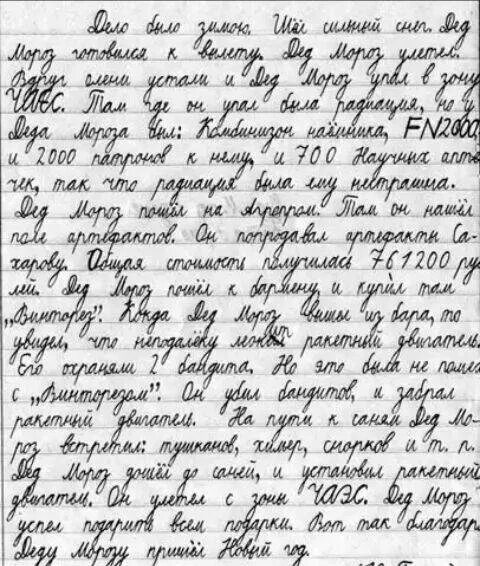 Дело было зимою. Шёл сильный снег. Дед
Мороз готовился к вылету. Дед Мороз улетел.
Вдруг олени устали и Дед Мороз упал в зону
ЧАЕС. Там где он упал была радиация, но у
Деда Мороза был: Комбинизон наёмника, FN2000,
и 2000 патронов к нему, и 700 Научных апте
чек, так что радиация была ему нестрашна.
Дед Мороз пошёл на Агропром. Там он нашёл
поле артефактов. Он попродавал артефакты Са-
харову. Общая стоимость получилась 761200 руб
лей. Дед Мороз пошёл к бармену и купил там
„Винторез". Когда Дед Мороз вышы из бара, то
увидел, что неподалёку лежит ракетный двигатель.
Его охраняли 2 бандита. Но это была не помех
с „Винторезом". Он убил бандитов, и забрал
ракетный двигатель. На пути к саням Дед Мо-
роз встретил: тушканов, химер, снорков и т. п.
Дед Мороз дошёл до саней, и установил ракетный
двигатель. Он улетел с зоны ЧАЭС. Дед Мороз
успел подарить всем подарки. Вот так благодар
Деду Морозу пришёл Новый год.